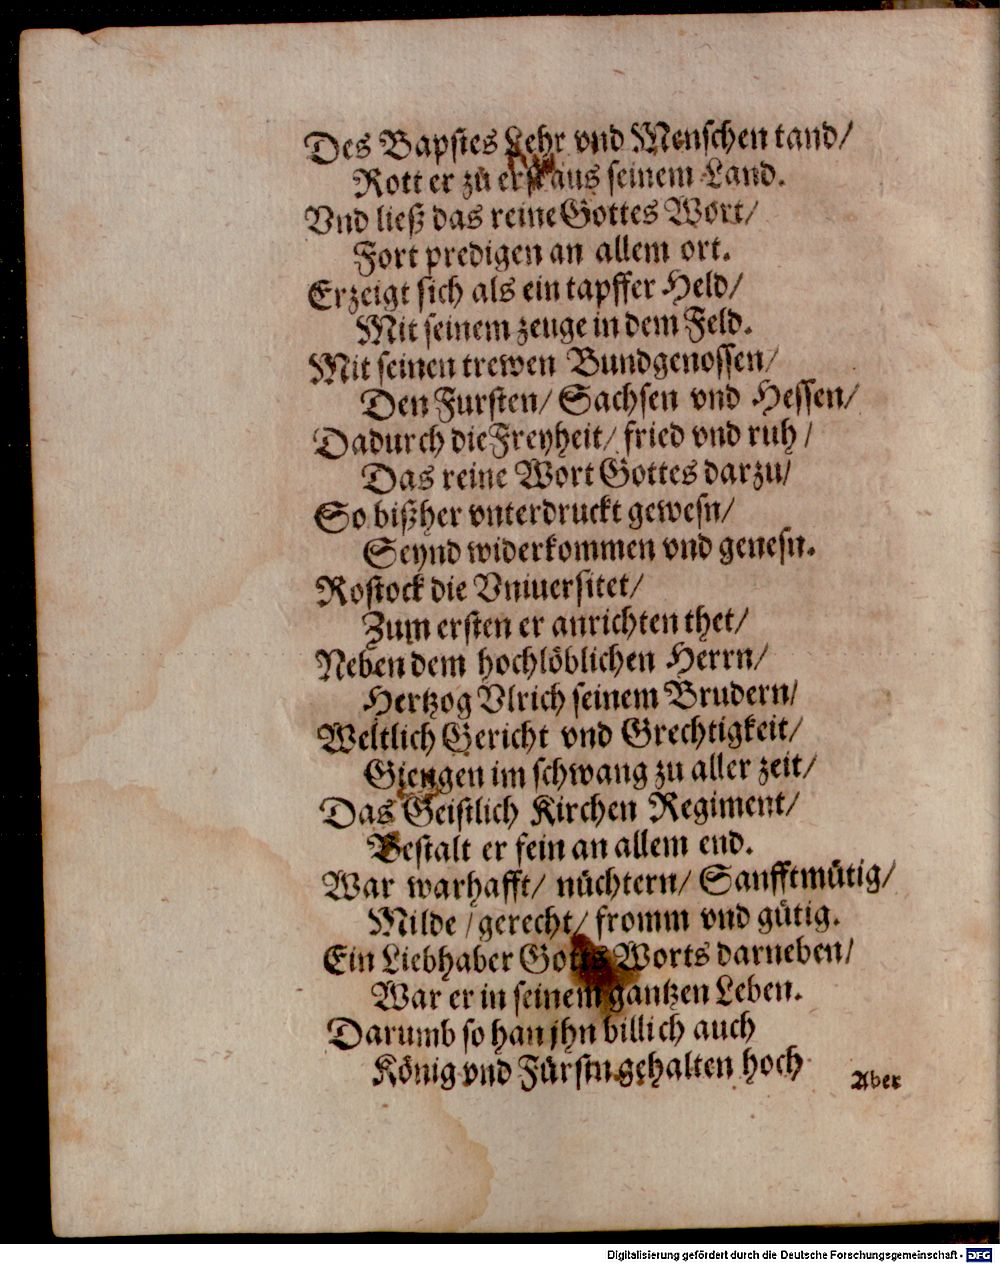 Des Bapstes Lehr vnd Menschen tand/
Rott er zů erst aus seinem Land.
Vnd ließ das reine Gottes Wort/
Fort predigen an allem ort.
Erzeigt sich als ein tapffer Held/
Mit seinem zeuge in dem Feld.
Mit seinen trewen Bundgenossen/
Den Fursten/ Sachsen vnd Hessen/
Dadurch die Freyheit/ fried vnd ruh/
Das reine Wort Gottes darzu/
So bißher vnterdruckt gewesn/
Seynd widerkommen vnd genesn.
Rostock die Vniuersitet/
Zum ersten er anrichten thet/
Neben dem hochlöblichen Herrn/
Hertzog Vlrich seinem Brudern/
Weltlich Gericht vnd Grechtigkeit/
Giengen im schwang zu aller zeit/
Das Geistlich Kirchen Regiment/
Bestalt er fein an allem end.
War warhafft/ nüchtern/ Sanfftmütig/
Milde/ gerecht/ fromm vnd gütig.
Ein Liebhaber Gotts Worts darneben/
War er in seinem gantzen Leben.
Darumb so han jhn billich auch
König vnd Fürstn gehalten hoch
Aber
Digitalisierung gefördert durch die Deutsche Forschungsgemeinschaft - DFG